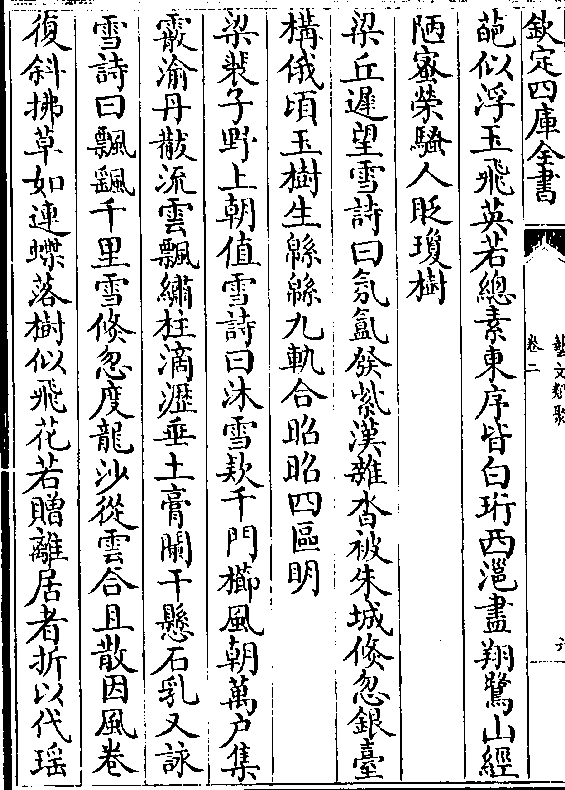 欽定四庫全書
藝文類聚
卷二
六
葩似浮玉飛英若總素東序皆白珩西𨞬盡翔鷺山經
陋密榮騷人貶瓊樹
梁丘遲望雪詩曰氛氳發紫漢雜沓被朱城倐忽銀臺
構俄頃玉樹生緜緜九軌合昭昭四區明
梁裴子野上朝值雪詩曰沐雪款千門櫛風朝萬户集
霰渝丹黻流雲飄繡柱滴瀝垂土膏闌干懸石乳又詠
雪詩曰飄颻千里雪倐忽度龍沙從雲合且散因風卷
復斜拂草如連蝶落樹似飛花若贈離居者折以代瑶